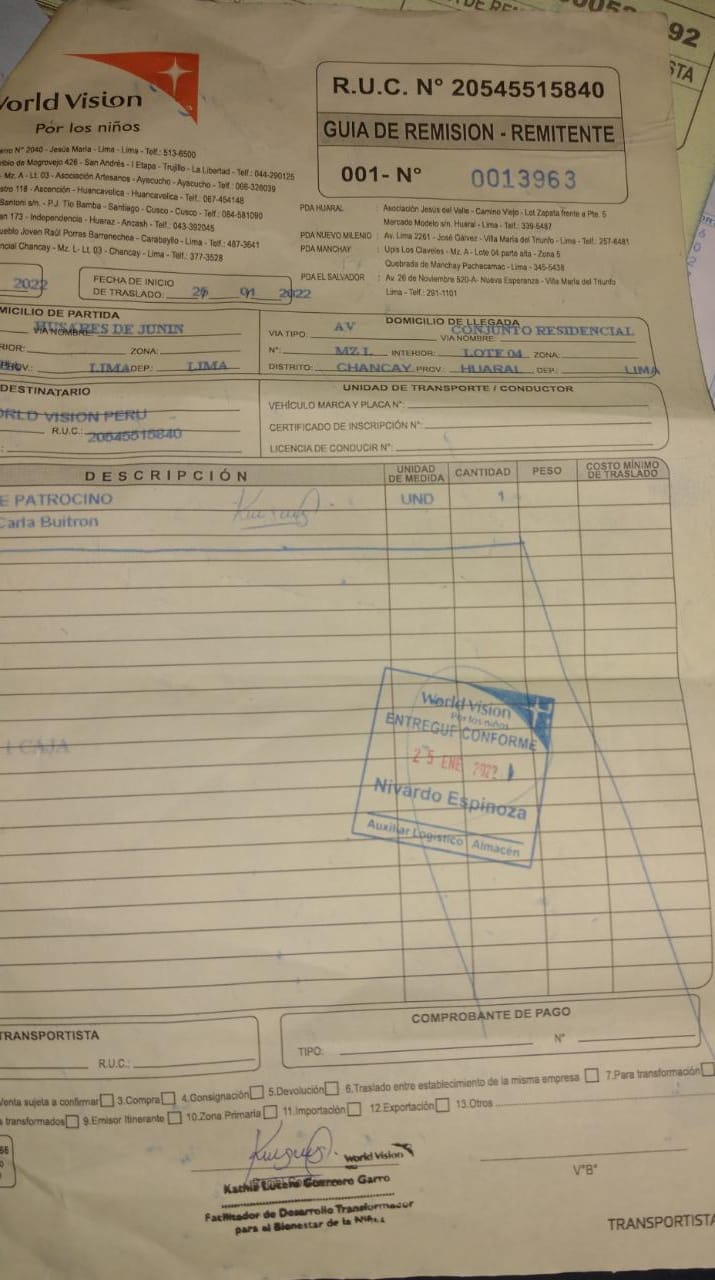 World Vision
Por los niños
R.U.C. N° 20545515840
GUIA DE REMISION - REMITENTE
001- N° 0013963
N° 2040 - Jesús María - Lima - Lima - Telf.: 513-6500
de Mogrovejo 426 - San Andrés - I Etapa - Trujillo - La Libertad - Telf.: 044-290125
Mz. A - Lt. 03 - Asociación Artesanos - Ayacucho - Ayacucho - Telf.: 066-326039
118 - Ascención - Huancavelica - Huancavelica - Telf.: 067-454148
Santoni s/n. - P.J. Tío Bamba - Santiago - Cusco - Cusco - Telf.: 084-581090
173 - Independencia - Huaraz - Ancash - Telf.: 043-392045
Pueblo Joven Raúl Porras Barrenechea - Carabayllo - Lima - Telf.: 487-3641
Chancay - Mz. L- Lt. 03 - Chancay - Lima - Telf.: 377-3528
PDA HUARAL : Asociación Jesús del Valle - Camino Viejo - Lot Zapata frente a Pte. 5
Mercado Modelo s/n. Huaral - Lima - Telf.: 339-5487
PDA NUEVO MILENIO : Av. Lima 2261 - José Gálvez - Villa María del Triunfo - Lima - Telf.: 257-6481
PDA MANCHAY : Upis Los Claveles - Mz. A - Lote 04 parte alta - Zona 5
Quebrada de Manchay Pachacamac - Lima - 345-5438
PDA EL SALVADOR : Av. 26 de Noviembre 520-A- Nueva Esperanza - Villa María del Triunfo
Lima - Telf.: 291-1101
2022
FECHA DE INICIO
DE TRASLADO: 01 2022
DOMICILIO DE PARTIDA
VIA NOMBRE: HUSARES DE JUNIN
ZONA:
PROV.: LIMA DEP.: LIMA
DOMICILIO DE LLEGADA
VIA TIPO: AV VIA NOMBRE: CONJUNTO RESIDENCIAL
N°: MZ L INTERIOR: LOTE 04 ZONA:
DISTRITO: CHANCAY PROV.: HUARAL DEP.: LIMA
DESTINATARIO
WORLD VISION PERU
R.U.C.: 20545515840
UNIDAD DE TRANSPORTE / CONDUCTOR
VEHÍCULO MARCA Y PLACA N°:
CERTIFICADO DE INSCRIPCIÓN N°:
LICENCIA DE CONDUCIR N°:
DESCRIPCIÓN UNIDAD DE MEDIDA CANTIDAD PESO COSTO MÍNIMO DE TRASLADO
E PATROCINO UND 1
Carla Buitron
1 CAJA
World Vision
Por los niños
ENTREGUE CONFORME
25 ENE 2022
Nivardo Espinoza
Auxiliar Logístico Almacén
TRANSPORTISTA
R.U.C.:
COMPROBANTE DE PAGO
TIPO: N°
Venta sujeta a confirmar 3.Compra 4.Consignación 5.Devolución 6.Traslado entre establecimiento de la misma empresa 7.Para transformación
transformados 9.Emisor Itinerante 10.Zona Primaria 11.Importación 12.Exportación 13.Otros
World Vision
Kathia Lucero Guerrero Garro
Facilitador de Desarrollo Transformador
para el Bienestar de la Niñez
V°B°
TRANSPORTISTA